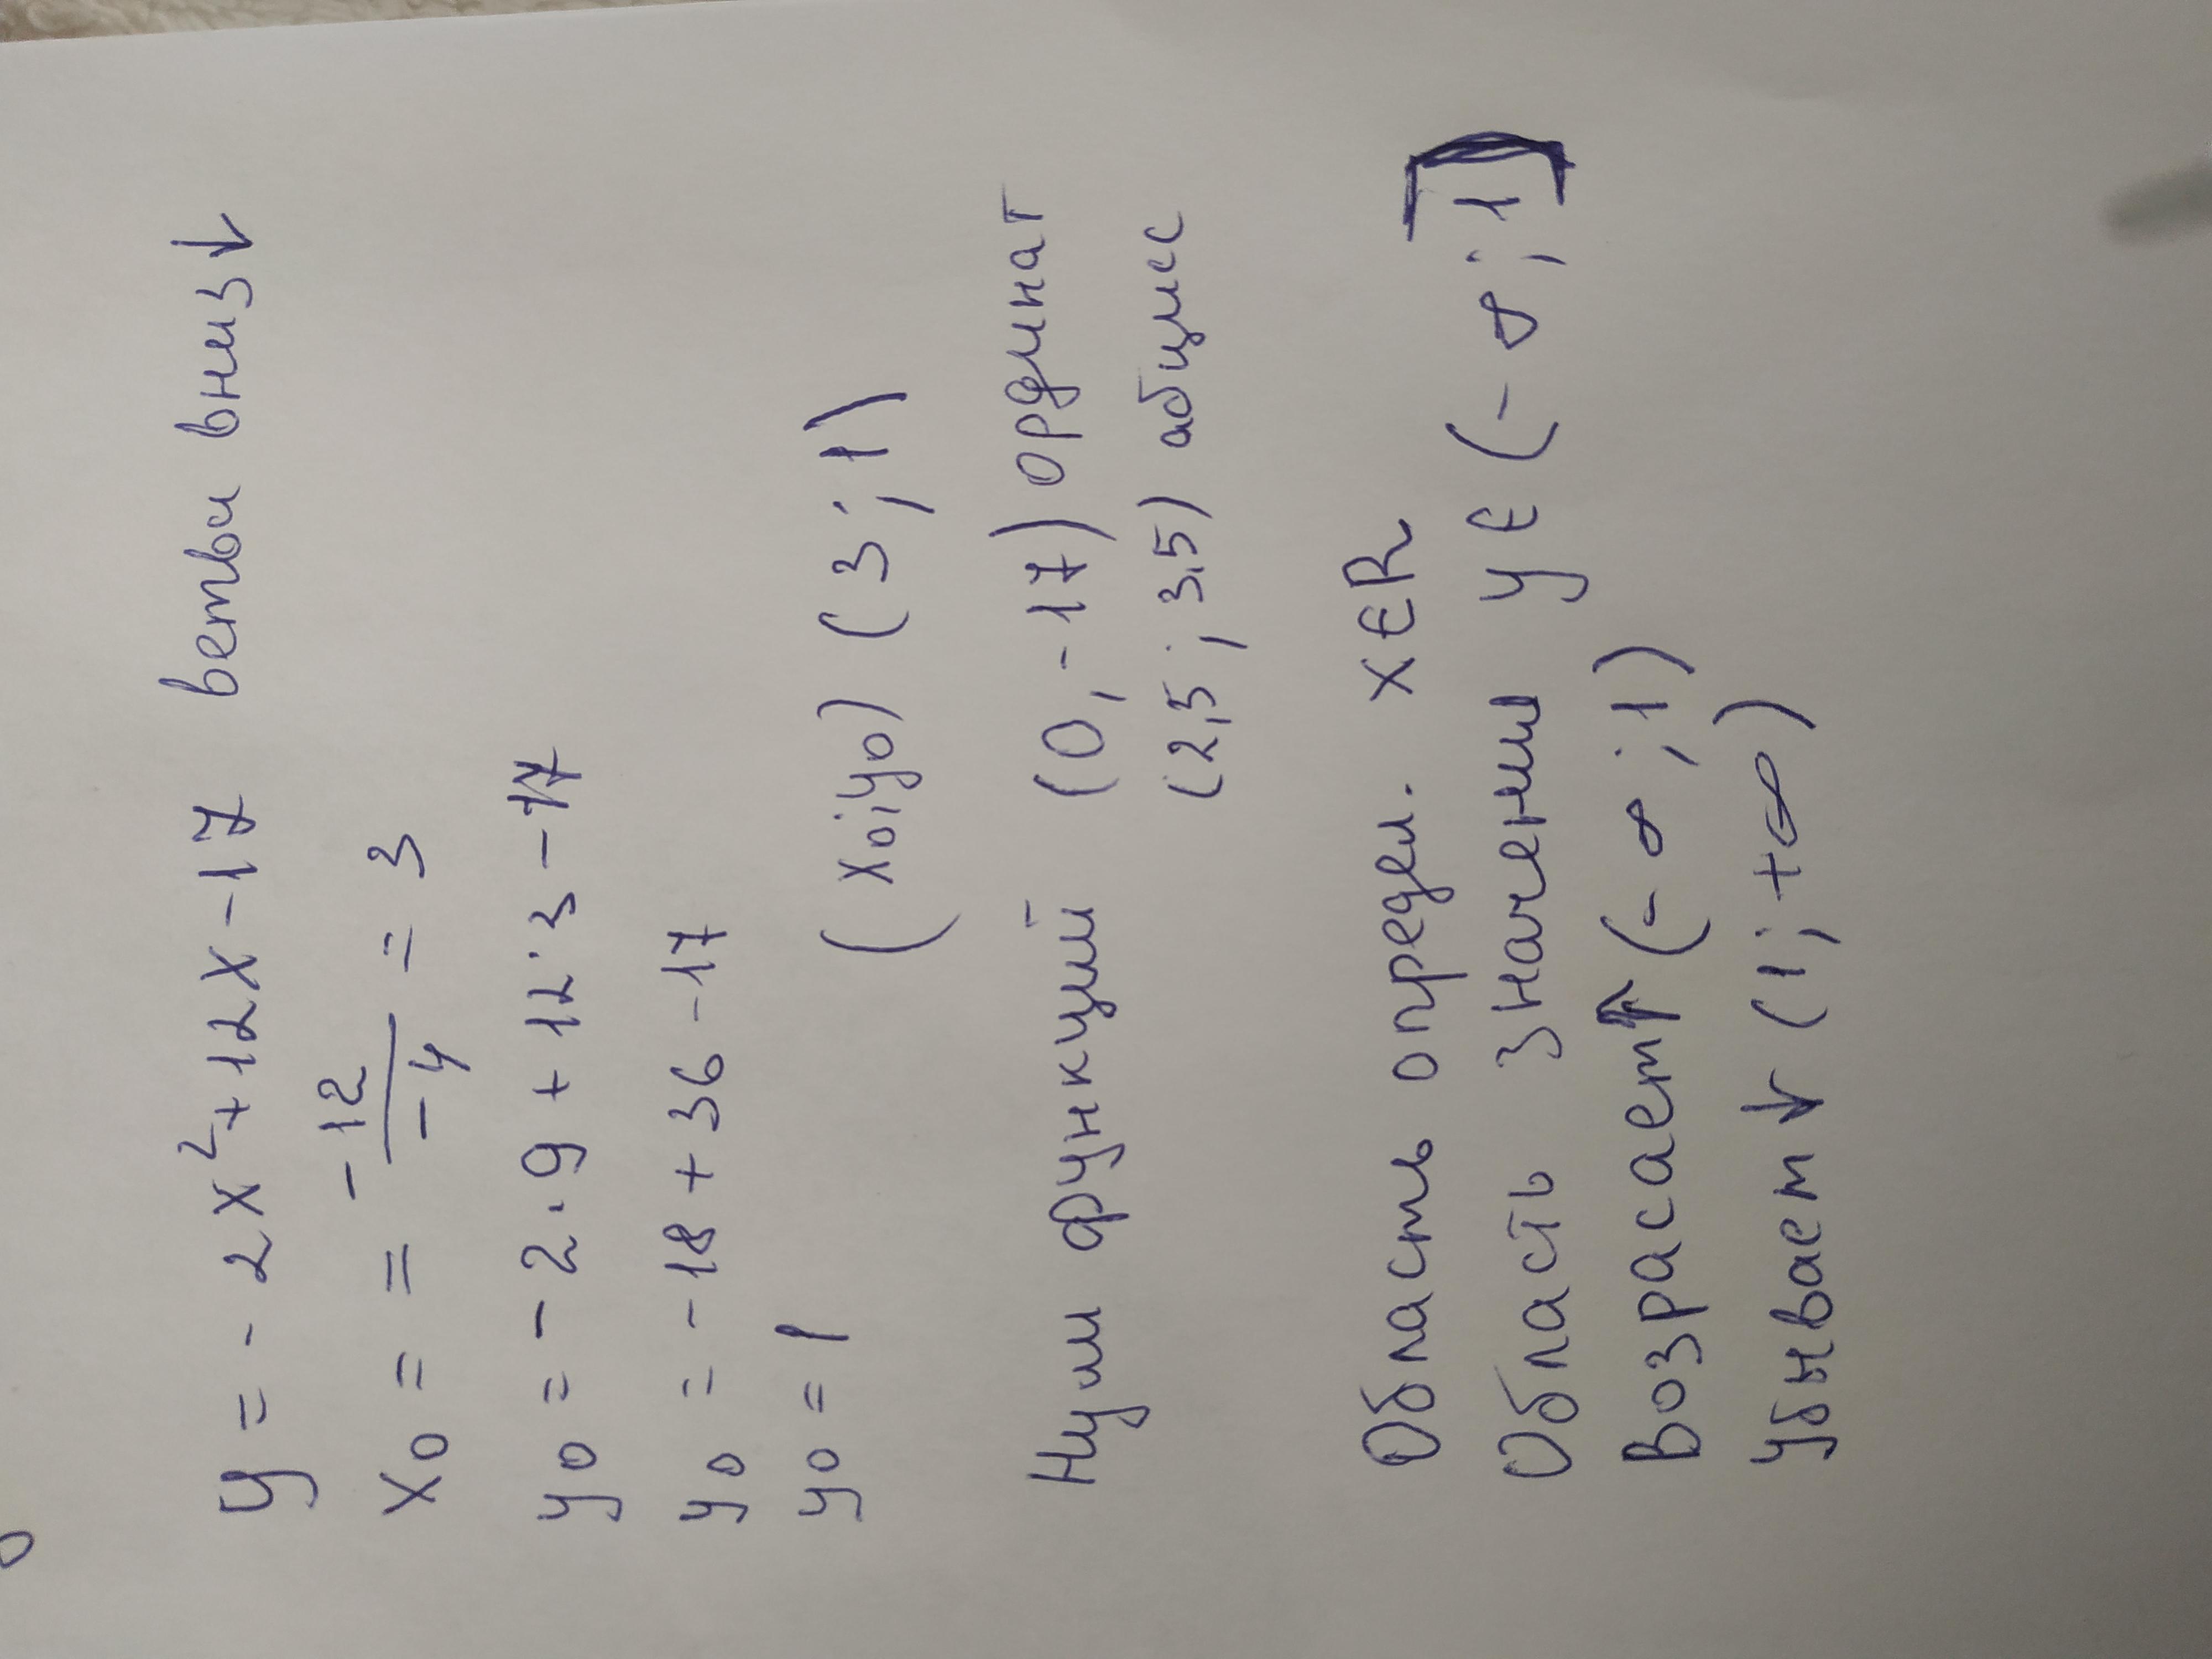 y = - 2x² + 12x - 17 ветви вниз↓
x₀ = = -12/-4 = 3
y₀ = -2·9 + 12·3 - 17
y₀ = -18 + 36 - 17
y₀ = 1
(x₀;y₀) (3;1)
Нули функций (0,-17) ординат
(2,5; 3,5) абцисс
Область определ. x∈R
Область значении y∈(-∞;1]
Возрасает↑ (-∞;1)
Убывает↓ (1;+∞)